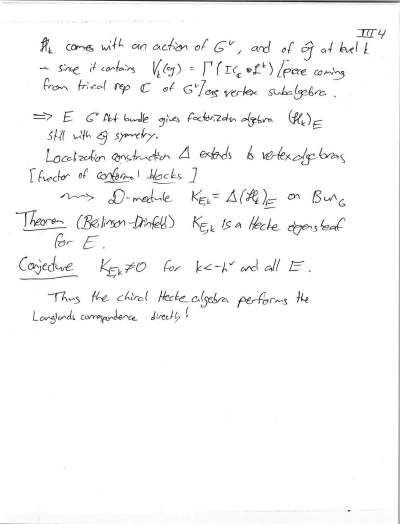 III 4
ℋ_k comes with an action of G^v, and of ĝ at level k
– since it contains V_k(g) = Γ(IC_e ⊗ ℒ^k) [piece coming
from trivial rep ℂ of G^v] as vertex subalgebra.
⟹ E G^v flat bundle gives factorization algebra (ℋ_k)_E
still with ĝ symmetry.
Localization construction Δ extends to vertex algebras
[functor of conformal blocks]
⇝ D-module K_{E,k} = Δ(ℋ_k)_E on Bun_G
Theorem (Beilinson-Drinfeld) K_{E,k} is a Hecke eigensheaf
for E.
Conjecture K_{E,k} ≠ 0 for k < -h^v and all E.
Thus the chiral Hecke algebra performs the
Langlands correspondence directly!